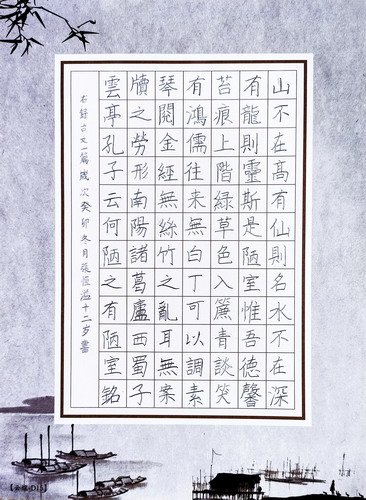 山不在髙有仙則名水不在深
有龍則靈斯是陋室惟吾德馨
苔痕上階緑草色入簾青談笑
有鴻儒往来無白丁可以調素
琴閱金經無絲竹之亂耳無案
牘之勞形南陽諸葛廬西蜀子
雲亭孔子云何陋之有陋室銘
右録古文一篇歲次癸卯冬月張恆溢十二岁書